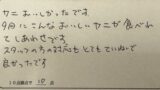 カニおいしかったです。
9月にこんなおいしいカニが食べれ
てしあわせです。
スタッフの方の対応もとてもていねいで
良かったです